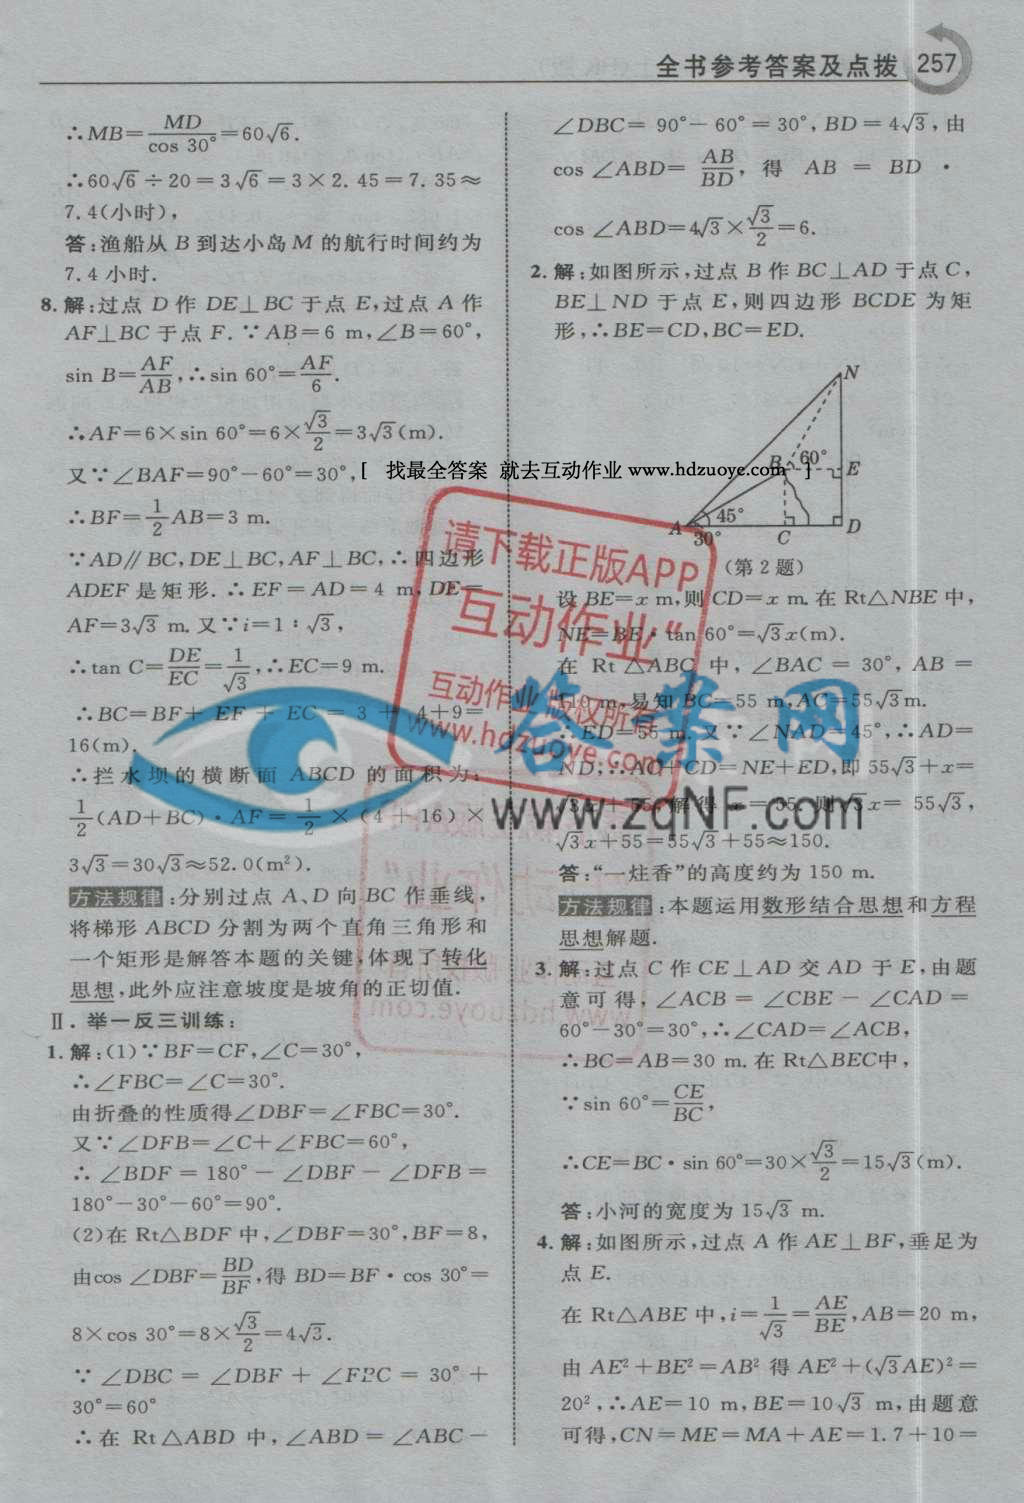 全书参考答案及点拨 257
∴MB=MD/cos 30°=60√6.
∴60√6÷20=3√6=3×2.45=7.35≈
7.4(小时),
答:渔船从 B 到达小岛 M 的航行时间约为
7.4 小时.
8.解:过点 D 作 DE⊥BC 于点 E,过点 A 作
AF⊥BC 于点 F.∵AB=6 m,∠B=60°,
sin B=AF/AB,∴sin 60°=AF/6.
∴AF=6×sin 60°=6×√3/2=3√3(m).
又∵∠BAF=90°-60°=30°,
∴BF=1/2AB=3 m.
∵AD∥BC,DE⊥BC,AF⊥BC,∴四边形
ADEF 是矩形.∴EF=AD=4 m,DE=
AF=3√3 m.又∵i=1∶√3,
∴tan C=DE/EC=1/√3,∴EC=9 m.
∴BC=BF+EF+EC=3+4+9=
16(m).
∴拦水坝的横断面 ABCD 的面积为:
1/2(AD+BC)·AF=1/2×(4+16)×
3√3=30√3≈52.0(m²).
方法规律:分别过点 A、D 向 BC 作垂线,
将梯形 ABCD 分割为两个直角三角形和
一个矩形是解答本题的关键,体现了转化
思想,此外应注意坡度是坡角的正切值.
Ⅱ.举一反三训练:
1.解:(1)∵BF=CF,∠C=30°,
∴∠FBC=∠C=30°.
由折叠的性质得∠DBF=∠FBC=30°.
又∵∠DFB=∠C+∠FBC=60°,
∴∠BDF=180°-∠DBF-∠DFB=
180°-30°-60°=90°.
(2)在 Rt△BDF 中,∠DBF=30°,BF=8,
由cos ∠DBF=BD/BF,得 BD=BF·cos 30°=
8×cos 30°=8×√3/2=4√3.
∵∠DBC=∠DBF+∠FBC=30°+
30°=60°
∴在 Rt△ABD 中,∠ABD=∠ABC-
∠DBC=90°-60°=30°,BD=4√3,由
cos ∠ABD=AB/BD,得 AB=BD·
cos ∠ABD=4√3×√3/2=6.
2.解:如图所示,过点 B 作 BC⊥AD 于点 C,
BE⊥ND 于点 E,则四边形 BCDE 为矩
形,∴BE=CD,BC=ED.
N
B 60° E
A 45° 30° C D
(第 2 题)
[ 找最全答案 就去互动作业 www.hdzuoye.com ]
设 BE=x m,则 CD=x m.在 Rt△NBE 中,
NE=BE·tan 60°=√3x(m).
在 Rt△ABC 中,∠BAC=30°,AB=
110 m,易知 BC=55 m,AC=55√3 m.
∴ED=55 m.又∵∠NAD=45°,∴AD=
ND,∴AC+CD=NE+ED,即 55√3+x=
√3x+55,解得 x=55,则√3x=55√3,
√3x+55=55√3+55≈150.
答:“一炷香”的高度约为 150 m.
方法规律:本题运用数形结合思想和方程
思想解题.
3.解:过点 C 作 CE⊥AD 交 AD 于 E,由题
意可得,∠ACB=∠CBE-∠CAD=
60°-30°=30°,∴∠CAD=∠ACB,
∴BC=AB=30 m.在 Rt△BEC中,
∵sin 60°=CE/BC,
∴CE=BC·sin 60°=30×√3/2=15√3(m).
答:小河的宽度为 15√3 m.
4.解:如图所示,过点 A 作 AE⊥BF,垂足为
点 E.
在 Rt△ABE 中,i=1/√3=AE/BE,AB=20 m,
由 AE²+BE²=AB² 得 AE²+(√3AE)²=
20²,∴AE=10 m,BE=10√3 m,由题意
可得,CN=ME=MA+AE=1.7+10=
请下载正版APP
“互动作业”
互动作业 版权所有
www.hdzuoye.com
答案网
www.zqNF.com